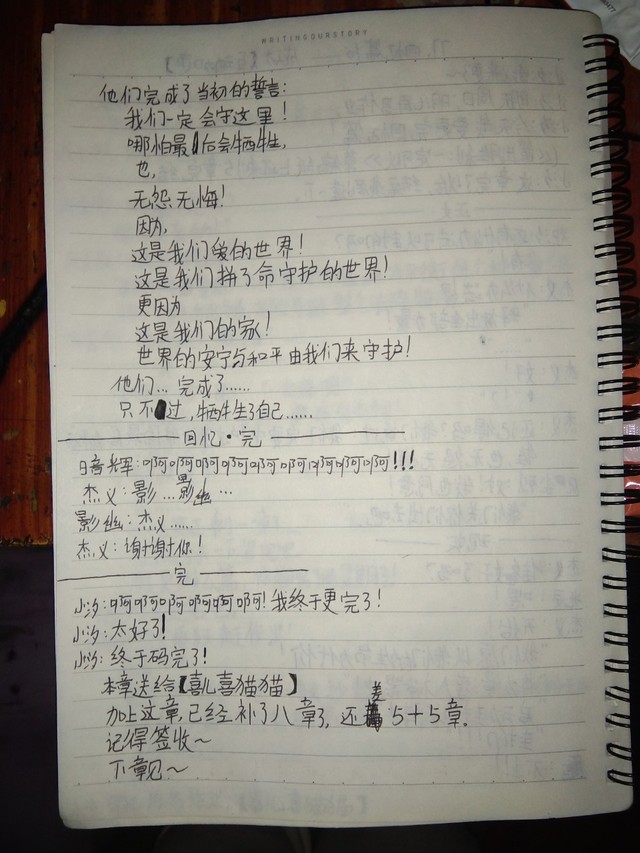 WRITINGOURSTORY
他们完成了当初的誓言:
我们一定会守这里!
哪怕最后会牺牲,
也,
无怨无悔!
因为,
这是我们爱的世界!
这是我们拼了命守护的世界!
更因为
这是我们的家!
世界的安宁与和平由我们来守护!
他们…完成了……
只不过,牺牲了自己……
回忆·完
暗辉:啊啊啊啊啊啊啊啊啊!!!
杰义:影…影幽…
影幽:杰义……
杰义:谢谢你!
完
小汐:啊啊啊啊啊啊!我终于更完了!
小汐:太好了!
小汐:终于码完了!
本章送给【喜儿喜猫猫】
加上这章,已经补了八章了,还差5+5章.
记得签收~
下章见~